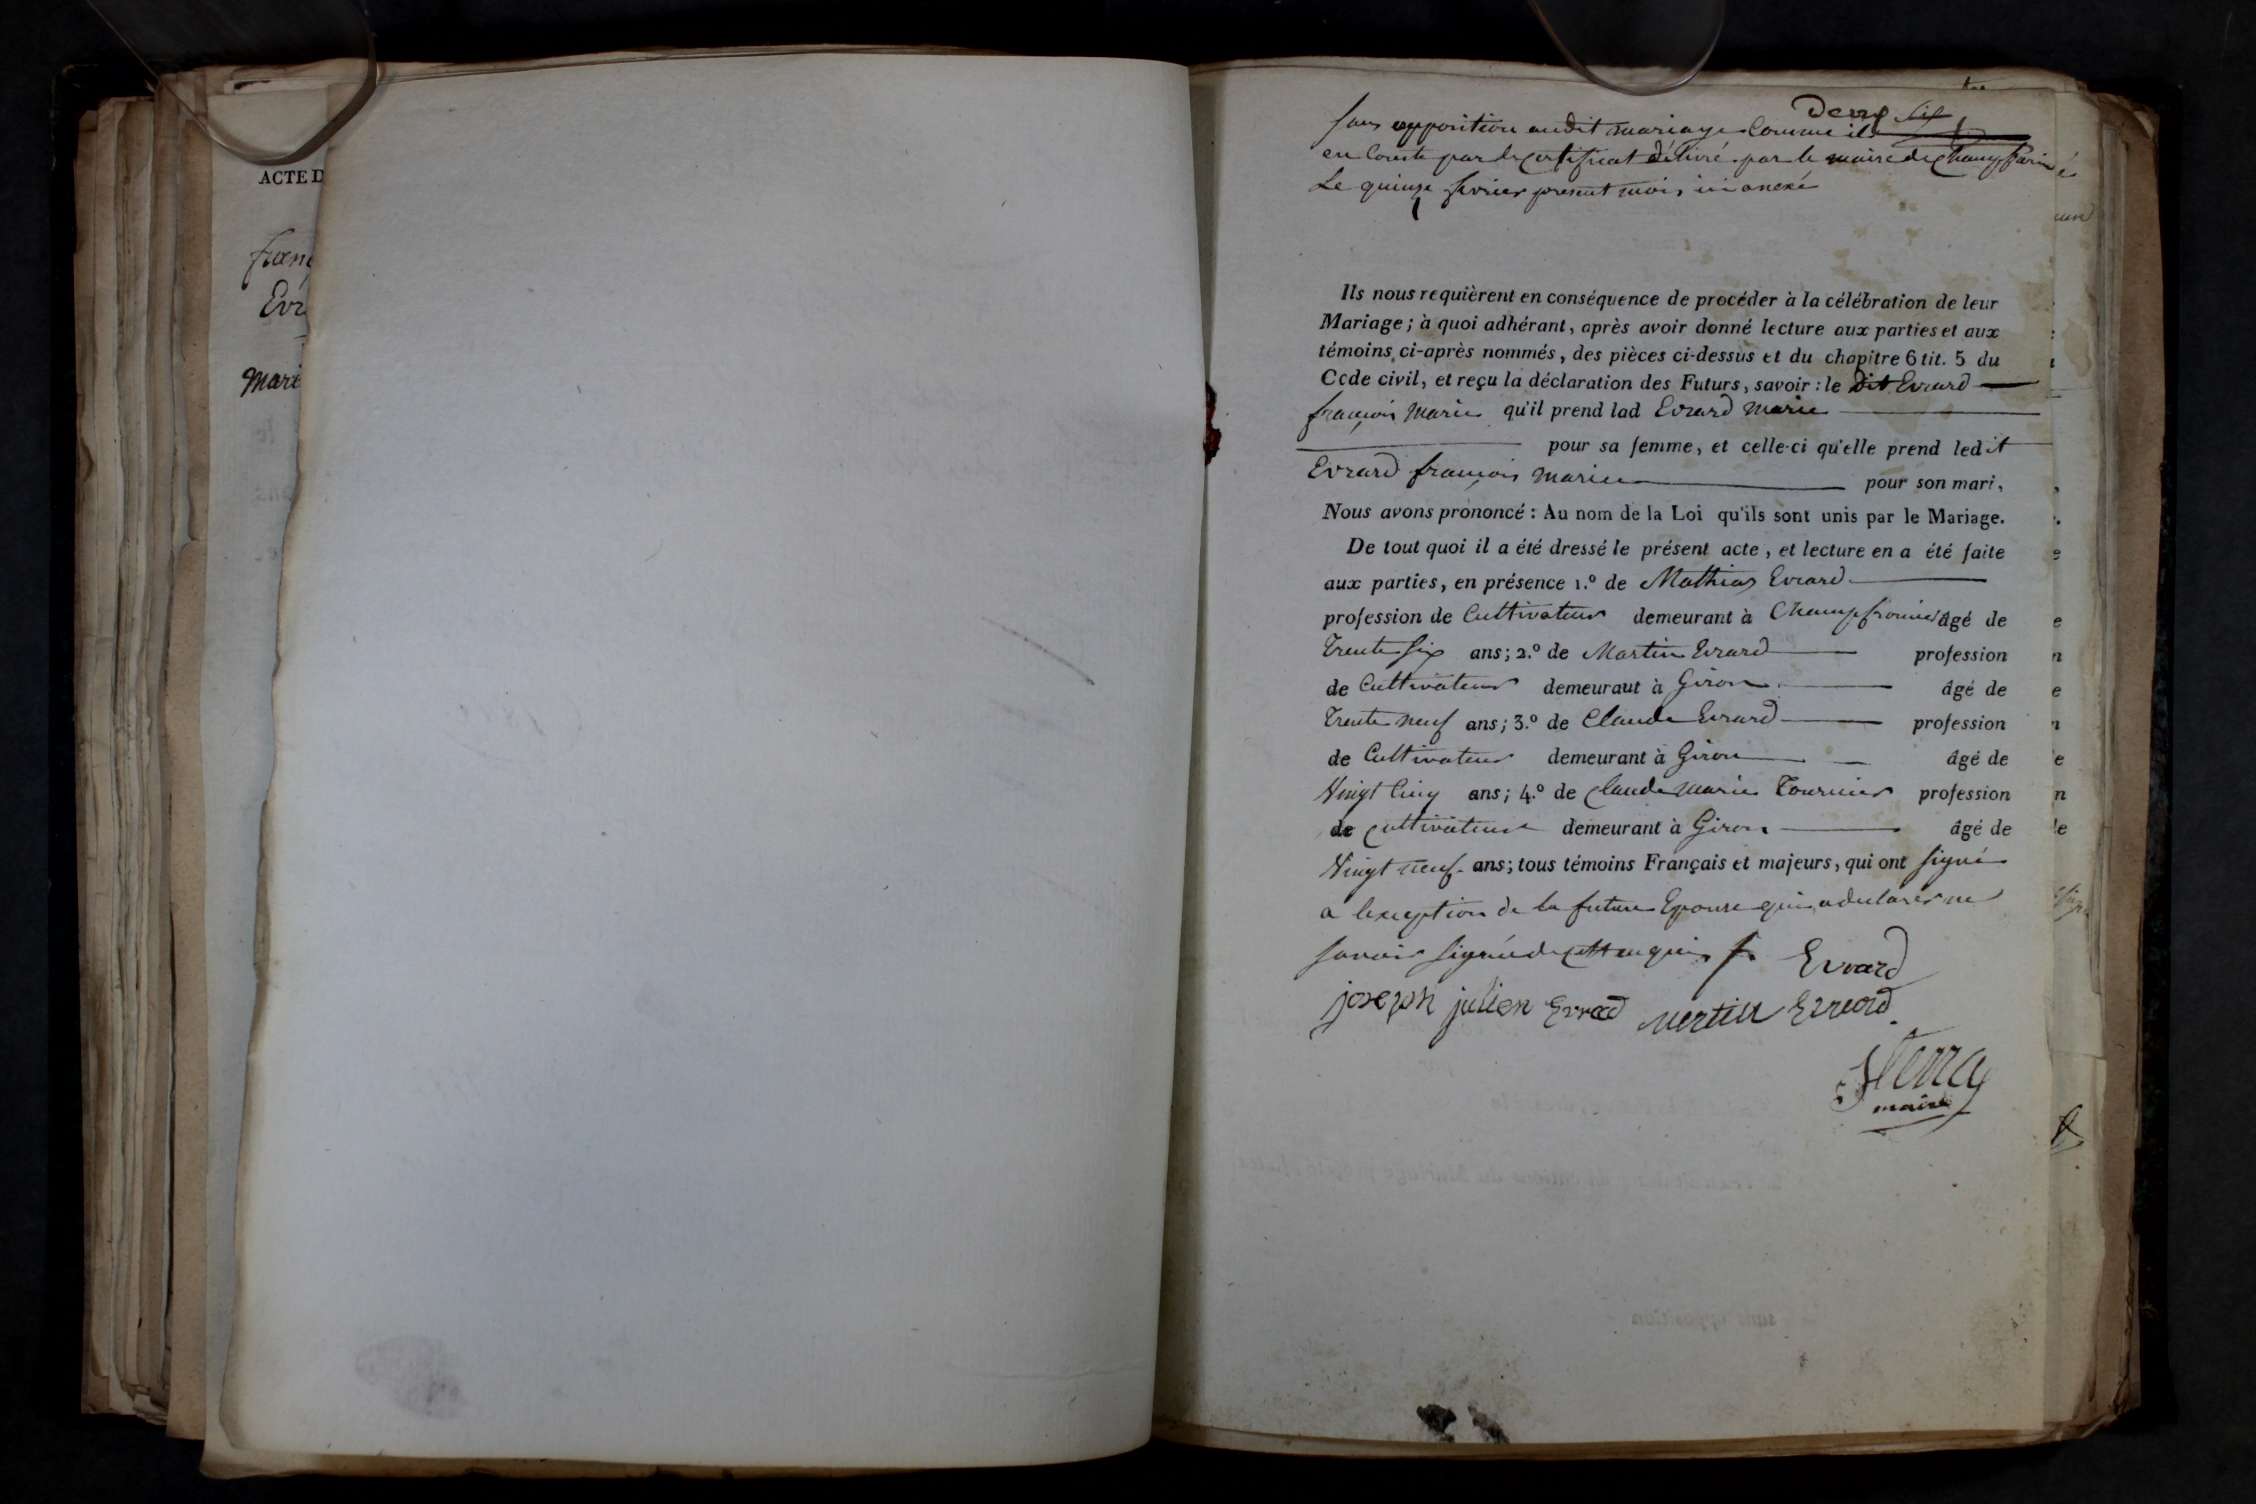 ACTE D
franç
Evr
Mari
Deux six
sans opposition audit mariage Comme il
en Conste par le certificat délivré par le maire de Champfromié
Le quinze fevrier present mois ici anexé
Ils nous requièrent en conséquence de procéder à la célébration de leur
Mariage ; à quoi adhérant, après avoir donné lecture aux parties et aux
témoins ci-après nommés, des pièces ci-dessus et du chapitre 6 tit. 5 du
Code civil, et reçu la déclaration des Futurs, savoir : le dit Evrard
françois Marie qu'il prend lad Evrard Marie
pour sa femme, et celle-ci qu'elle prend ledit
Evrard françois Marie pour son mari,
Nous avons prononcé : Au nom de la Loi qu'ils sont unis par le Mariage.
De tout quoi il a été dressé le présent acte, et lecture en a été faite
aux parties, en présence 1.º de Mathias Evrard
profession de Cultivateur demeurant à Champfromié âgé de
Trente six ans ; 2.º de Martin Evrard profession
de Cultivateur demeurant à Giron âgé de
Trente neuf ans ; 3.º de Claude Evrard profession
de Cultivateur demeurant à Giron âgé de
Vingt Cinq ans ; 4.º de Claude Marie Tournier profession
de Cultivateur demeurant à Giron âgé de
Vingt neuf ans ; tous témoins Français et majeurs, qui ont signé
a lexception de la future Epouse qui a declarer ne
savoir signée de cette enquis f Evrard
joseph julien Evrad mertin Evreard
maire